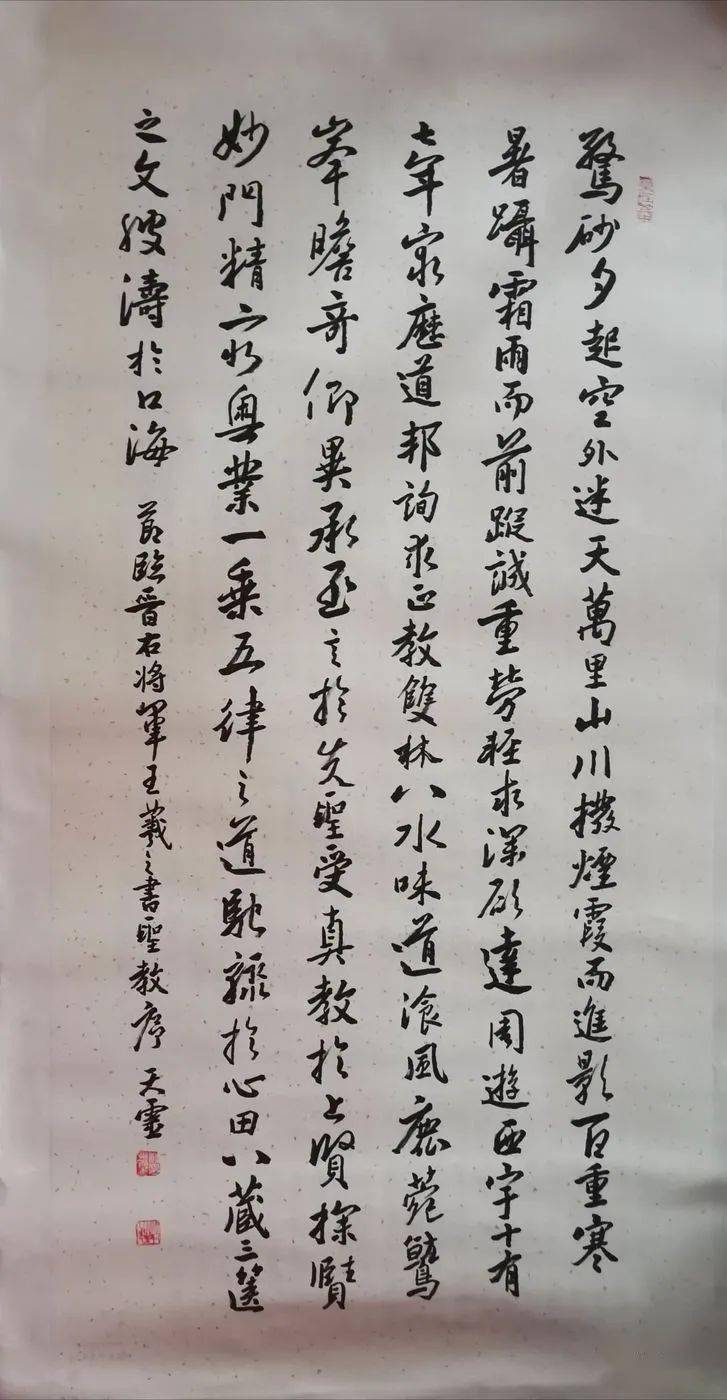 驚砂夕起空外迷天萬里山川撥煙霞而進影百重寒
暑躡霜雨而前蹤誠重勞輕求深願達周遊西宇十有
七年窮歷道邦詢求正教雙林八水味道飡風鹿菀鷲
峯瞻奇仰異承至言於先聖受真教於上賢探賾
妙門精窮奧業一乘五律之道馳驟於心田八藏三篋
之文波濤於口海 節臨晉右將軍王羲之書聖教序 天靈